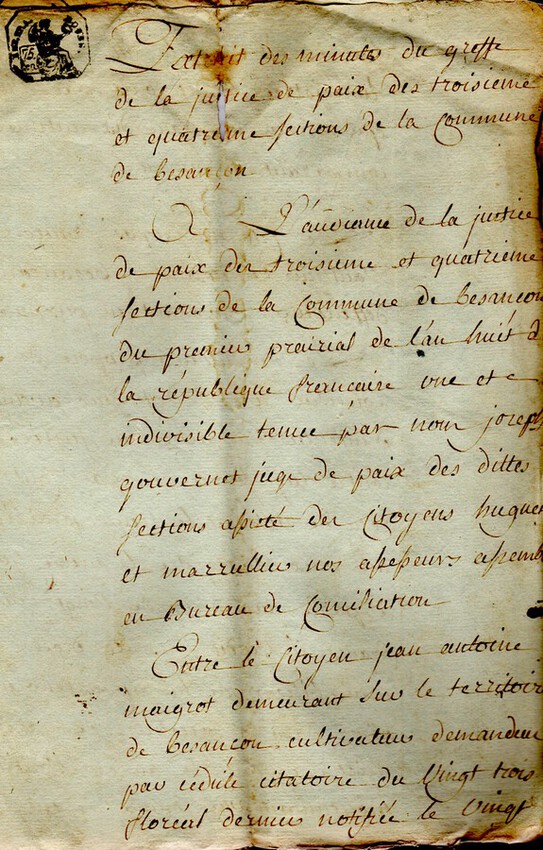 Extrait des minutes du greffe
de la justice de paix des troisieme
et quatrieme sections de la Commune
de besançon
A L'audiance de la justice
de paix des troisieme et quatrieme
sections de la Commune de besançon
du premier prairial de l'an huit d
la république francaise une et
indivisible tenue par nous joseph
gouvernet juge de paix des dittes
sections assisté des Citoyens huguet
et marrullier nos assesseurs assemb
en Bureau de Conciliation
Entre le Citoyen jean antoine
maigrot demeurant sur le territoir
de besançon cultivateur demandeu
par cédule citatoire du Vingt trois
floréal dernier notifiée le Vingt